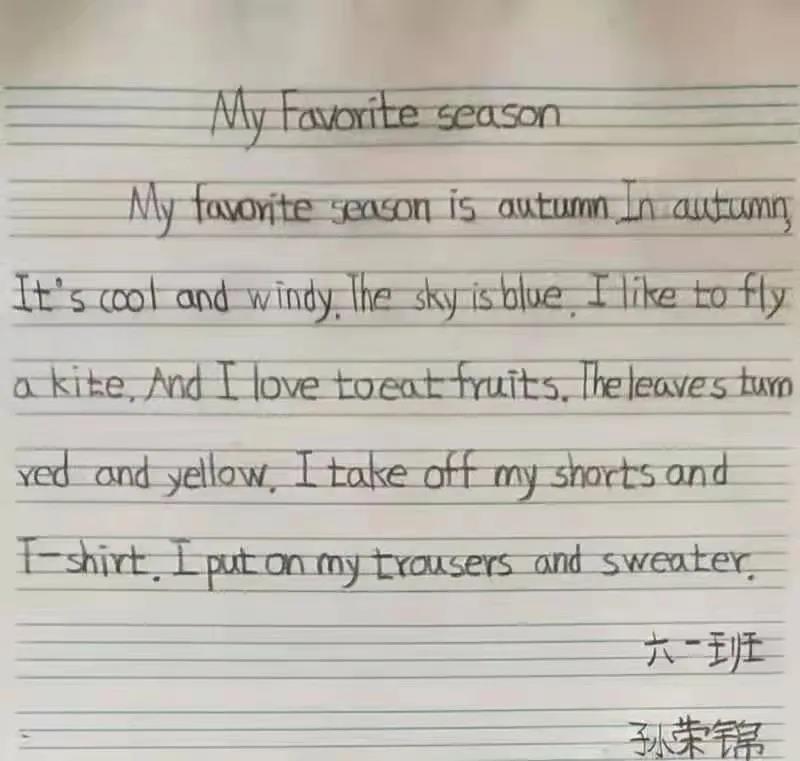 My Favorite season
My favorite season is autumn. In autumn,
It's cool and windy. The sky is blue. I like to fly
a kite. And I love to eat fruits. The leaves turn
red and yellow. I take off my shorts and
T-shirt. I put on my trousers and sweater.
六一班
孙荣锦